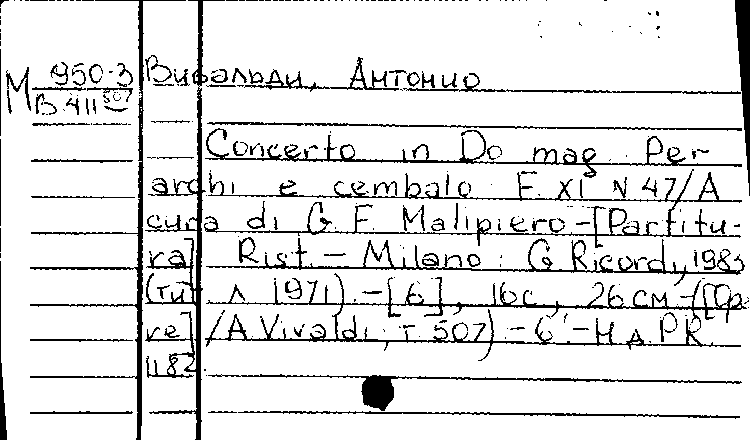 М 950-3 Вивальди, Антонио
В 411 507
Concerto in Do mag. Per
archi e cembalo. F. XI N 47/A
cura di G. F. Malipiero -[Partitu-
ra]. Rist. - Milano: G. Ricordi, 1983
(тит. л. 1971). -[6], 16 с., 26 см -([Ope-
re] /A. Vivaldi; т. 507) - 6'. - Н.д. PR.
1182.